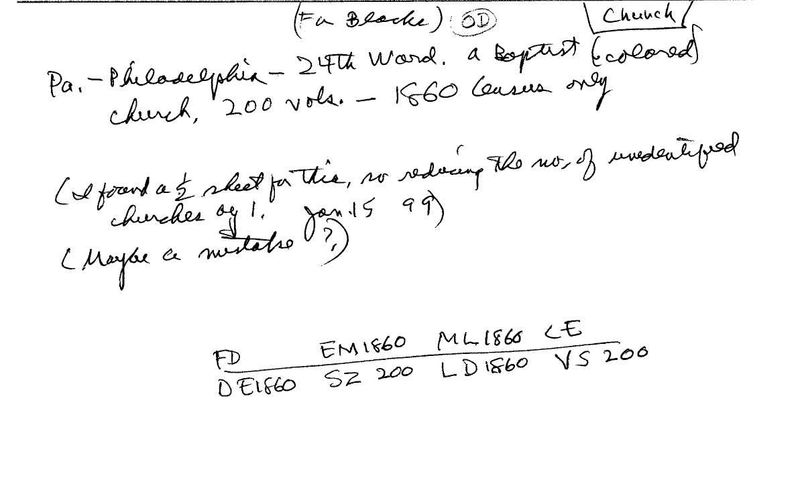 (For Blacks) OD Church
Pa. - Philadelphia - 24th Ward. a Baptist (colored)
church, 200 vols. - 1860 Census only
(I found a 1/2 sheet for this, so reducing the no. of unidentified
churches by 1. Jan. 15 99)
(Maybe a mistake ?)
FD EM1860 ML1860 LE
DE1860 SZ 200 LD1860 VS 200